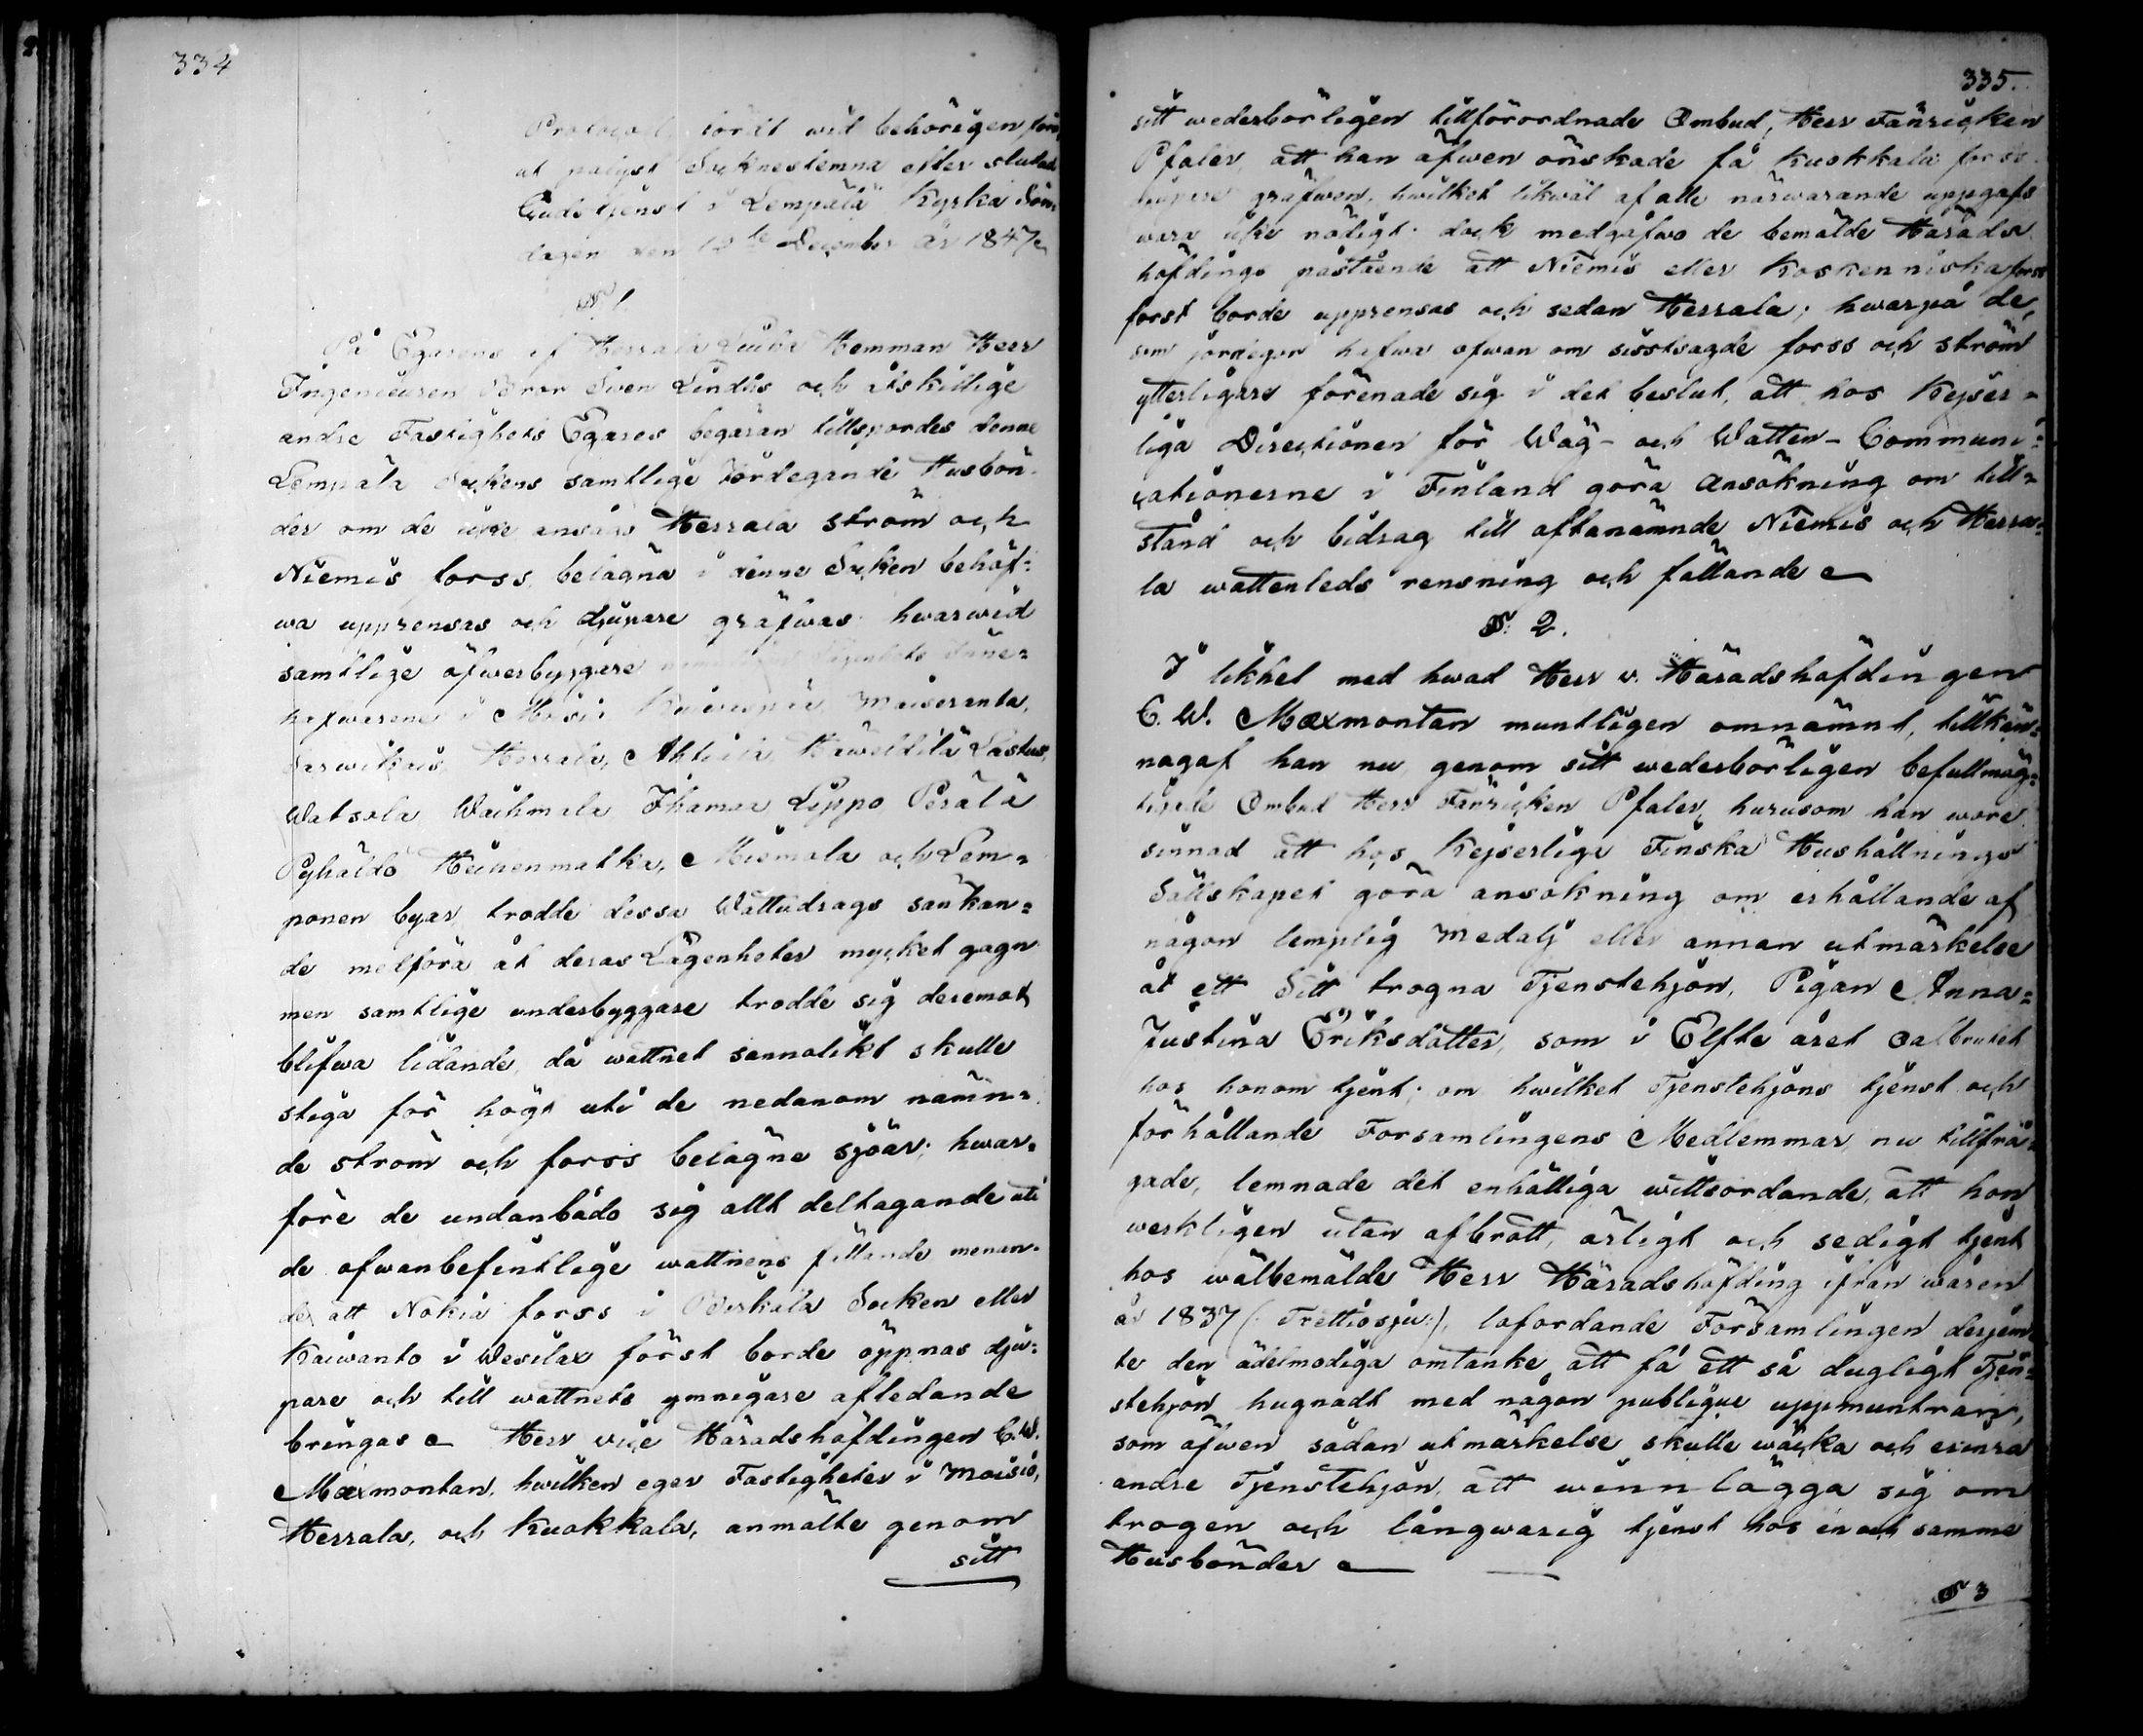 334
Protocol fördt wid behörigen för
ut pålyst Socknestemna efter slutad
Gudstjenst i Lempälä Kyrka Sön-
dagen den 12te December år 1847
§ 1.
På Egarens af Herrala Hemman Herr
Ingenieuren Bror Sven Lindhs och åtskillige
andre Fastighets Egares begäran tillspordes denne
Lempälä Sockens samtlige Jordegande Husbön-
der om de icke ansågo Herrala ström och
Niemis forss, belägna i denne Socken behöf-
wa upprensas och djupare gräfwas hwarwid
samtlige öfwerbyggere Lägenhets Inne=
hafwarene i Moisio Maiseranta,
Sarwikais Herrala, Ahtiala Haweltila Lastus,
Watsola Waihmala Ihamaa Lippo Perälä
Pyhäldö Heinenmatka, Miemola och Lem=
ponen byar, trodde dessa Wattudrags sänkan=
de medföra åt deras Lägenheter mycket gagn
men samtlige underbyggare trodde sig deremot
blifwa lidande, då wattnet sannolikt skulle
stiga för högt uti de nedanom nämn=
de ström och forss belägne sjöar; hwar=
före de undanbådo sig allt deltagande uti
de ofwanbefintlige wattnens fällande menan-
de, att Nokia forss i Birkala Socken eller
Kaiwanto i Wesilax först borde öppnas dju=
pare och till wattnets ymnigare afledande
bringas Herr vice Häradshöfdingen C.W.
Mæxmontan, hwilken eger Fastigheter i Moisio,
Herrala, och Kuokkala, anmälte genom
sitt
335.
sitt wederbörligen tillförordnade Ombud, Herr Fänricken
Pfaler, att han äfwen önskade få Kuokkala forss
djupare gräfwen, hwilket likwäl af alle närwarande uppgafs
wara icke nödigt. dock medgåfwo de bemälde Härads
höfdings påstående att Niemis eller Koskenniska forss
först borde upprensas och sedan Herrala; hwarpå de,
som jordegor hafwa ofwan om sistsagde forss och ström
ytterligare förenade sig i det beslut, att hos Kejser=
liga Directionen för Wäg- och Watten-Communi=
cationerne i Finland göra Ansökning om till=
stånd och bidrag till oftanämnde Niemis och Herra=
la wattenleds rensning och fällande
§. 2.
I likhet med hwad Herr v. Häradshöfdingen
C. W. Mæxmontan muntligen omnämnt, tillkän=
nagaf han nu genom sitt wederbörligen befullmäg=
tigade Ombud Herr Fänricken Pfaler, hurusom han wore
sinnad att hos Kejserliga Finska Hushållnings
Sällskapet göra ansökning om erhållande af
någon lemplig Medalj eller annan utmärkelse
åt ett Sitt trogna Tjenstehjon, Pigan Anna=
Justina Eriksdotter, som i Elfte året oafbrutet
hos honom tjent; om hwilket Tjenstehjons tjenst och
förhållande Församlingens Medlemmar, nu tillfrå=
gade, lemnade det enhälliga wittsordande, att hon
werkligen utan afbrott, ärligt och sedigt tjent
hos wälbemälde Herr Häradshöfding ifrån wåren
år 1837 (: Trettiosju:), lofordande Församlingen desjem
te den ädelmodiga omtanke att få ett så dugligt Tjen=
stehjon hugnadt med någon publique uppmuntran,
som äfwen sådan utmärkelse skulle wäcka och erinra
andre Tjenstehjon, att winnlägga sig om
trogen och långwarig tjenst hos en och samme
Husbönder
§ 3